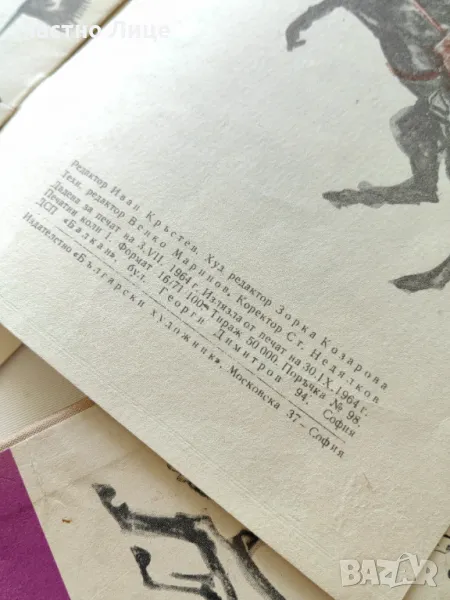 частно Лице
Редактор Иван Кръстев, Худ. редактор Зорка Козарова
Техн. редактор Венко Маринов, Коректор Ст. Недялков
Дадена за печат на 3. VII. 1964 г. Излязла от печат на 30. IX. 1964 г.
Печатни коли 1. Формат 16/71/100. Тираж 50 000. Поръчка № 98.
ДСП «Балкан», бул. Георги Димитров 94. София
Издателство «Български художник», Московска 37 — София
BAZAR